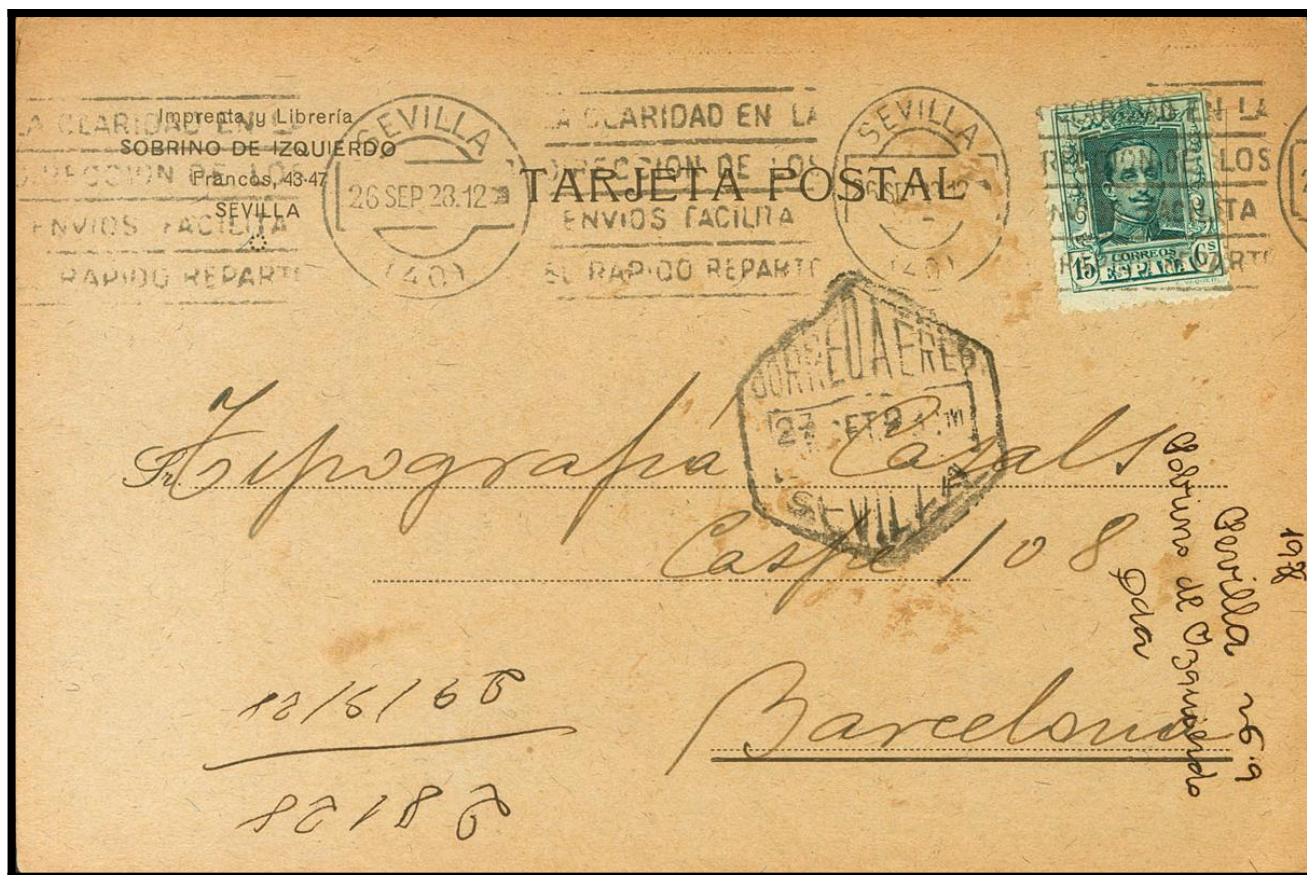 Imprenta y Librería
SOBRINO DE IZQUIERDO
Francos, 43-47
SEVILLA
LA CLARIDAD EN LA
DIRECCION DE LOS
ENVIOS FACILITA
EL RAPIDO REPARTO
SEVILLA
26 SEP. 28.12
(40)
LA CLARIDAD EN LA
DIRECCION DE LOS
ENVIOS FACILITA
EL RAPIDO REPARTO
SEVILLA
26 SEP. 28.12
(40)
TARJETA POSTAL
CORREOS
ESPAÑA
15 Cs
CORREO AEREO
27
SEVILLA
Sr. Tipografia Casals
Caspe 108
Barcelona
1928
Sevilla 26 9
Sobrino de Izquierdo